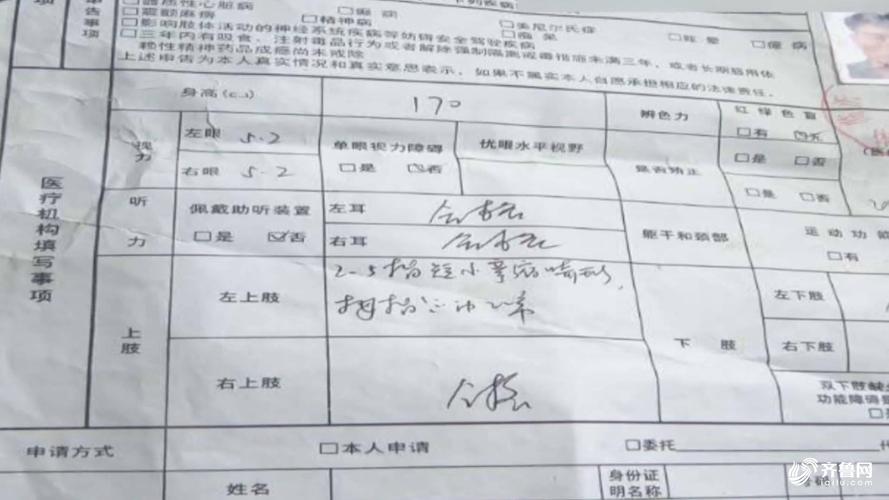 器质性心脏病 □癫痫
□眩晕 □癔病
□震颤麻痹 □精神病 □痴呆
□影响肢体活动的神经系统疾病等妨碍安全驾驶疾病
□三年内有吸食、注射毒品行为或者解除强制隔离戒毒措施未满三年，或者长期服用依
赖性精神药品成瘾尚未戒除
上述申告为本人真实情况和真实意思表示，如果不属实本人自愿承担相应的法律责任。
申告事项
医疗机构填写事项
身高(cm) 170 辨色力 红绿色盲
□有 ☑无
视力 左眼 5.2 单眼视力障碍 优眼水平视野 是否矫正 □是 □否
右眼 5.2 □是 ☑否 □是 □否
听力 佩戴助听装置 左耳 合格 躯干和颈部 运动功能
□是 ☑否 右耳 合格 □有
上肢 左上肢 2-5指短小 下肢 左下肢
拇指 正常
右上肢 合格 右下肢
双下肢缺
功能障碍
申请方式 □本人申请 □委托
姓名 身份证
明名称
齐鲁网
iqilu.com